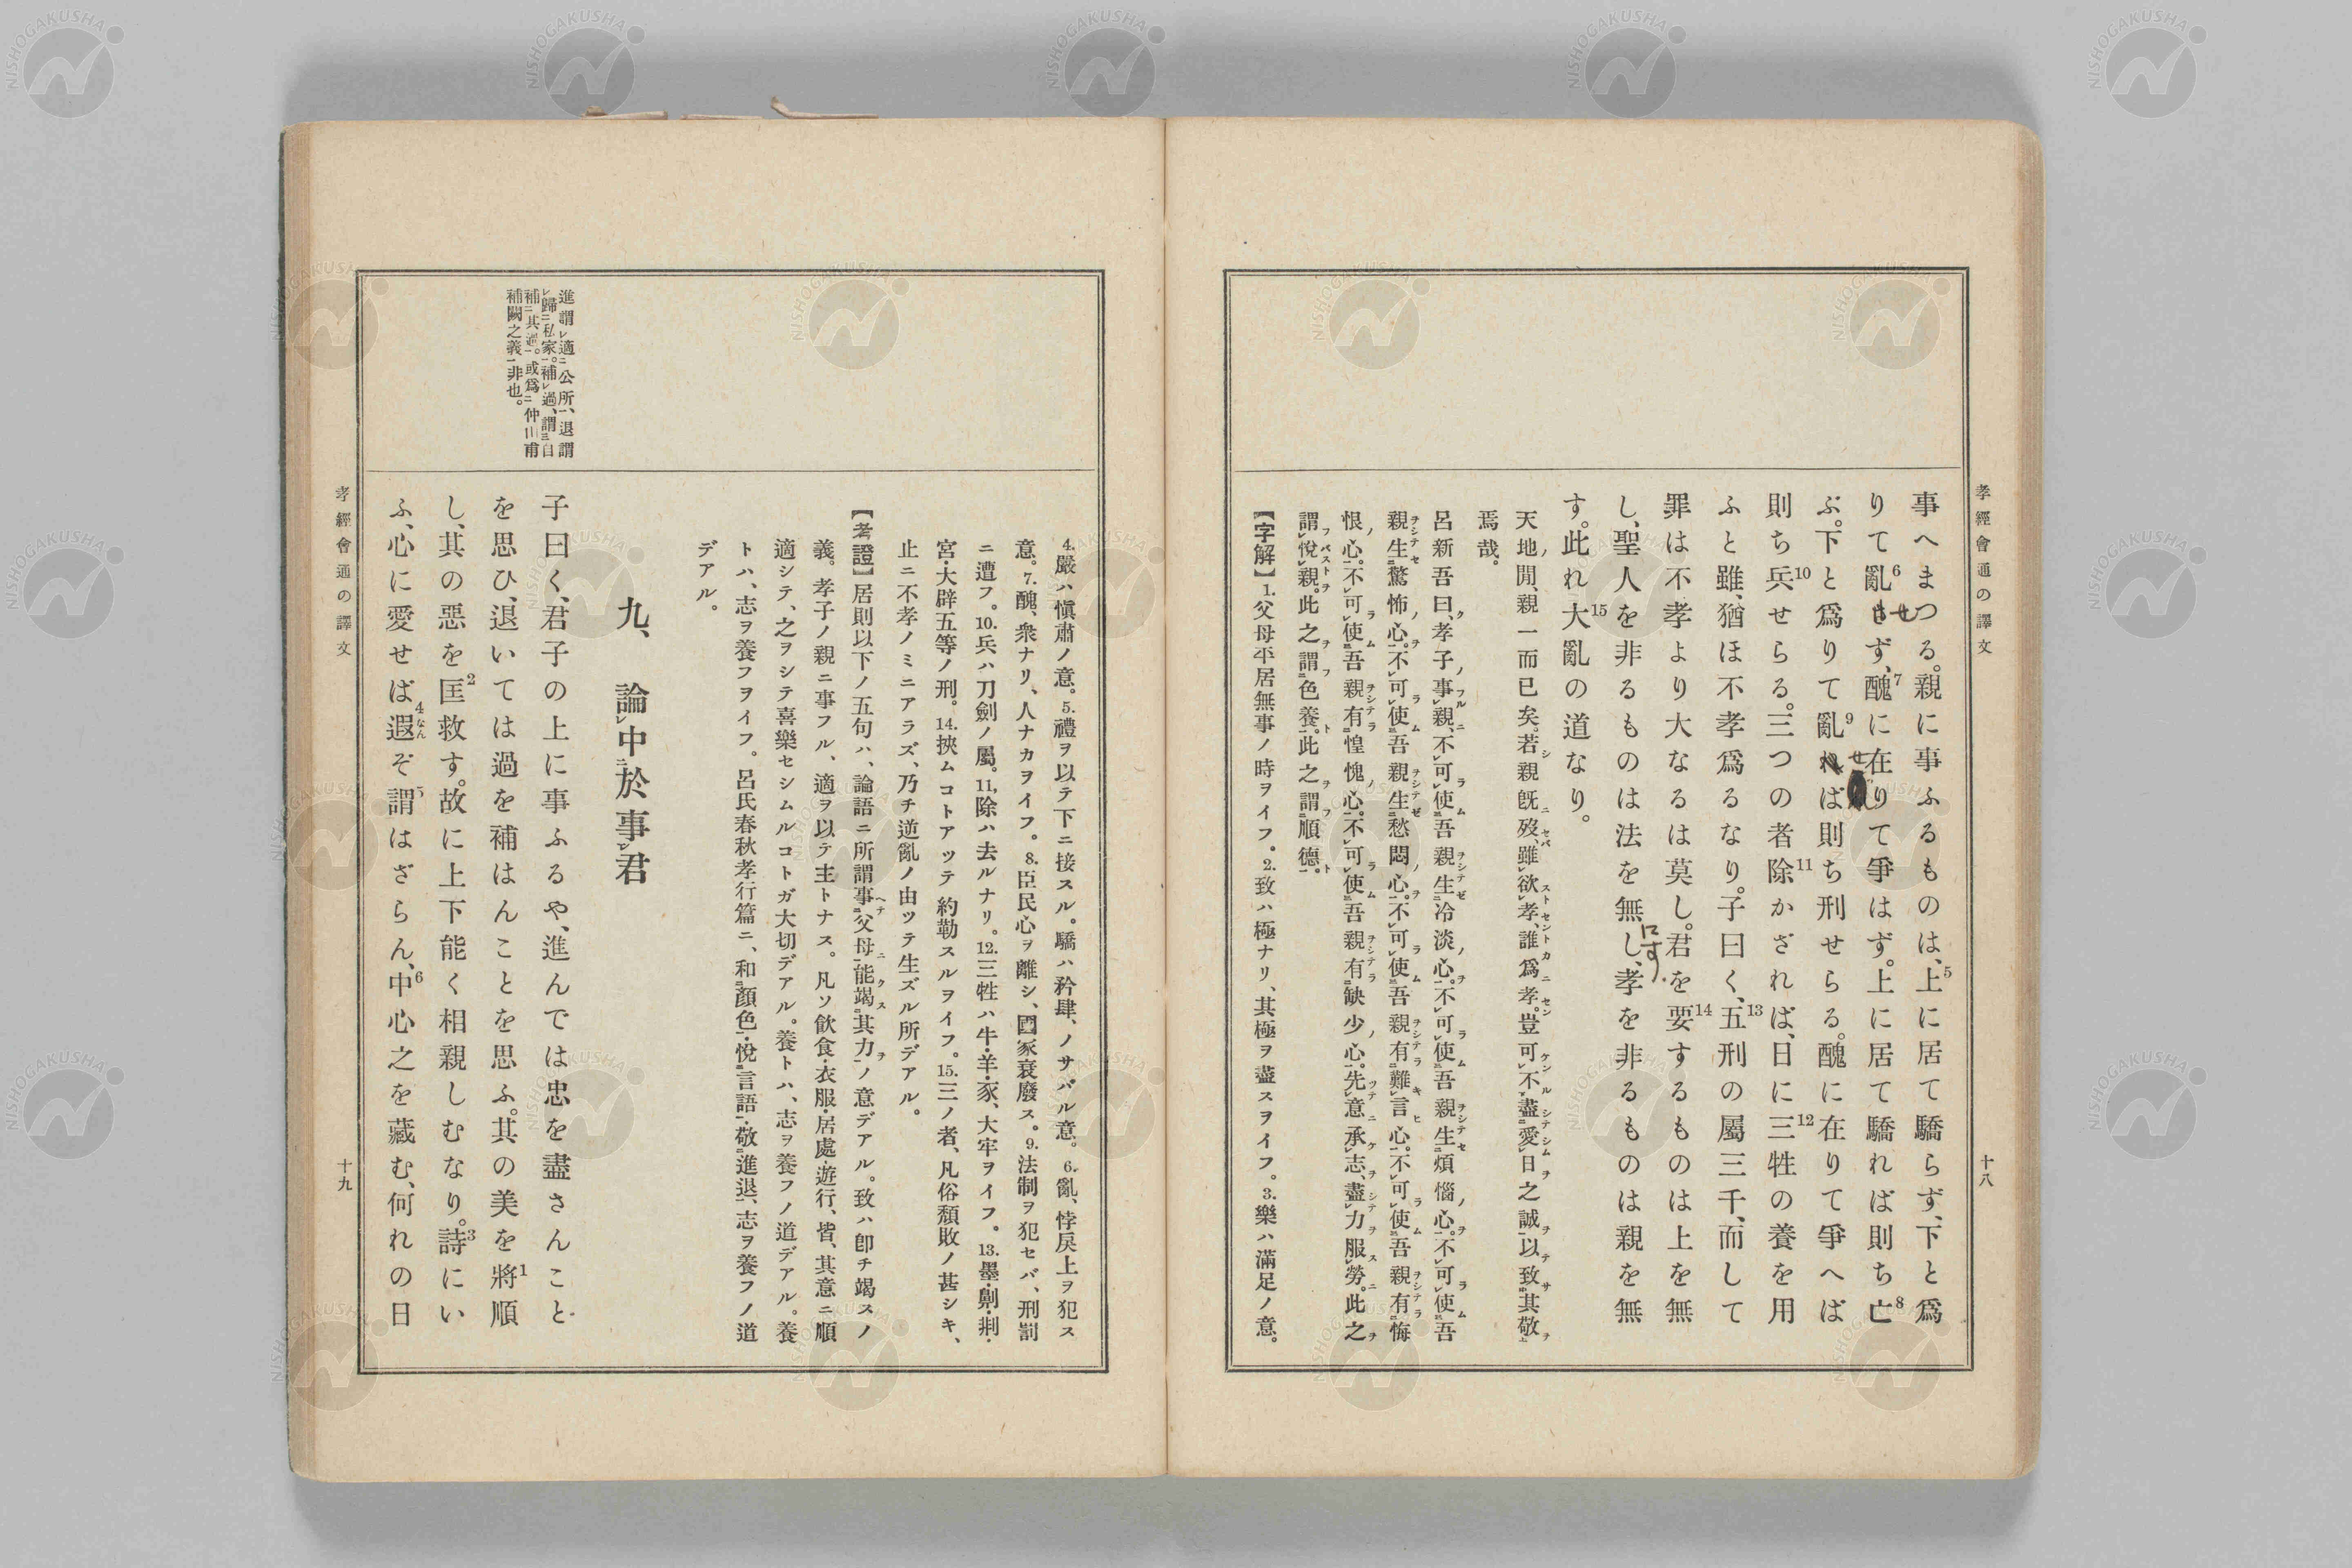 孝經會通の譯文
十八
事へまつる。親に事ふるものは、上に居て驕らず、下と爲
りて亂さず、醜に在りて爭はず。上に居て驕れば則ち亡
ぶ。下と爲りて亂れば則ち刑せらる。醜に在りて爭へば
則ち兵せらる。三つの者除かざれば、日に三牲の養を用
ふと雖、猶ほ不孝爲るなり。子曰く、五刑の屬三千、而して
罪は不孝より大なるは莫し。君を要するものは上を無
し、聖人を非るものは法を無し、孝を非るものは親を無
す。此れ大亂の道なり。
天地閒、親一而已矣。若親旣歿、雖欲孝、誰爲孝。豈可不盡愛日之誠、以致其敬
焉哉。
呂新吾曰、孝子事親、不可使吾親生冷淡心。不可使吾親生煩惱心。不可使吾
親生驚怖心。不可使吾親生愁悶心。不可使吾親有難言心。不可使吾親有悔
恨心。不可使吾親有惶愧心。不可使吾親有缺少心。先意承志、盡力服勞。此之
謂悅親。此之謂色養。此之謂順德。
【字解】1.父母平居無事ノ時ヲイフ。2.致ハ極ナリ、其極ヲ盡スヲイフ。3.樂ハ滿足ノ意。
4.嚴ハ愼肅ノ意。5.禮ヲ以テ下ニ接スル。驕ハ矜肆、ノサバル意。6.亂、悖戾上ヲ犯ス
意。7.醜、衆ナリ、人ナカヲイフ。8.臣民心ヲ離シ、國家衰廢ス。9.法制ヲ犯セバ、刑罰
ニ遭フ。10.兵ハ刀劍ノ屬。11.除ハ去ルナリ。12.三牲ハ牛・羊・豕、大牢ヲイフ。13.墨・劓・剕・
宮・大辟五等ノ刑。14.挾ムコトアツテ約勒スルヲイフ。15.三ノ者、凡俗頽敗ノ甚シキ、
止ニ不孝ノミニアラズ、乃チ逆亂ノ由ツテ生ズル所デアル。
【考證】居則以下ノ五句ハ、論語ニ所謂事父母能竭其力ノ意デアル。致ハ卽チ竭スノ
義。孝子ノ親ニ事フル、適ヲ以テ主トナス。凡ソ飮食・衣服・居處・遊行、皆、其意ニ順
適シテ、之ヲシテ喜樂セシムルコトガ大切デアル。養トハ、志ヲ養フノ道デアル。養
トハ、志ヲ養フヲイフ。呂氏春秋孝行篇ニ、和顏色・悅言語・敬進退、志ヲ養フノ道
デアル。
九、論中於事君
進謂適公所、退謂
歸私家。補過、謂自
補其過。或爲仲山甫
補闕之義非也。
子曰く、君子の上に事ふるや、進んでは忠を盡さんこと
を思ひ、退いては過を補はんことを思ふ。其の美を將順
し、其の惡を匡救す。故に上下能く相親しむなり。詩にい
ふ、心に愛せば遐ぞ謂はざらん、中心之を藏む、何れの日
孝經會通の譯文
十九